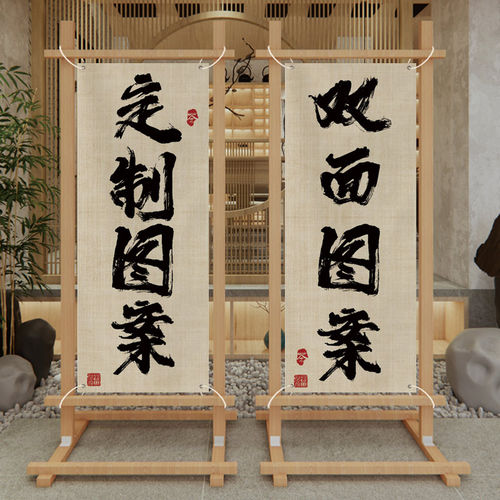 定制图案
双面图案